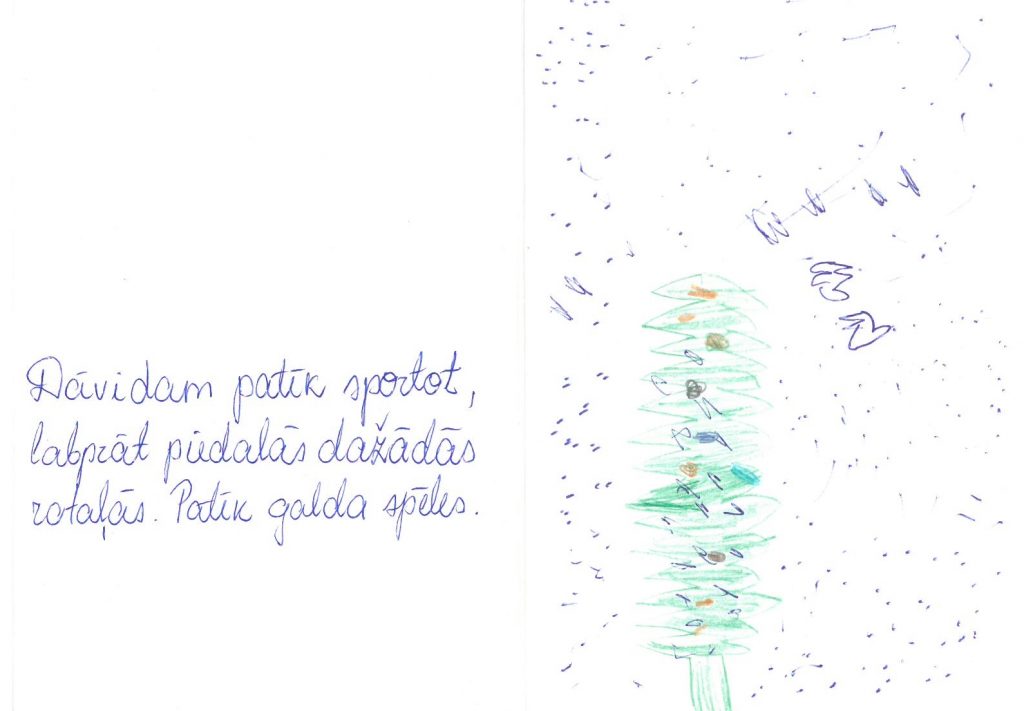 Dāvidam patīk sportot,
labprāt piedalās dažādās
rotaļās. Patīk galda spēles.